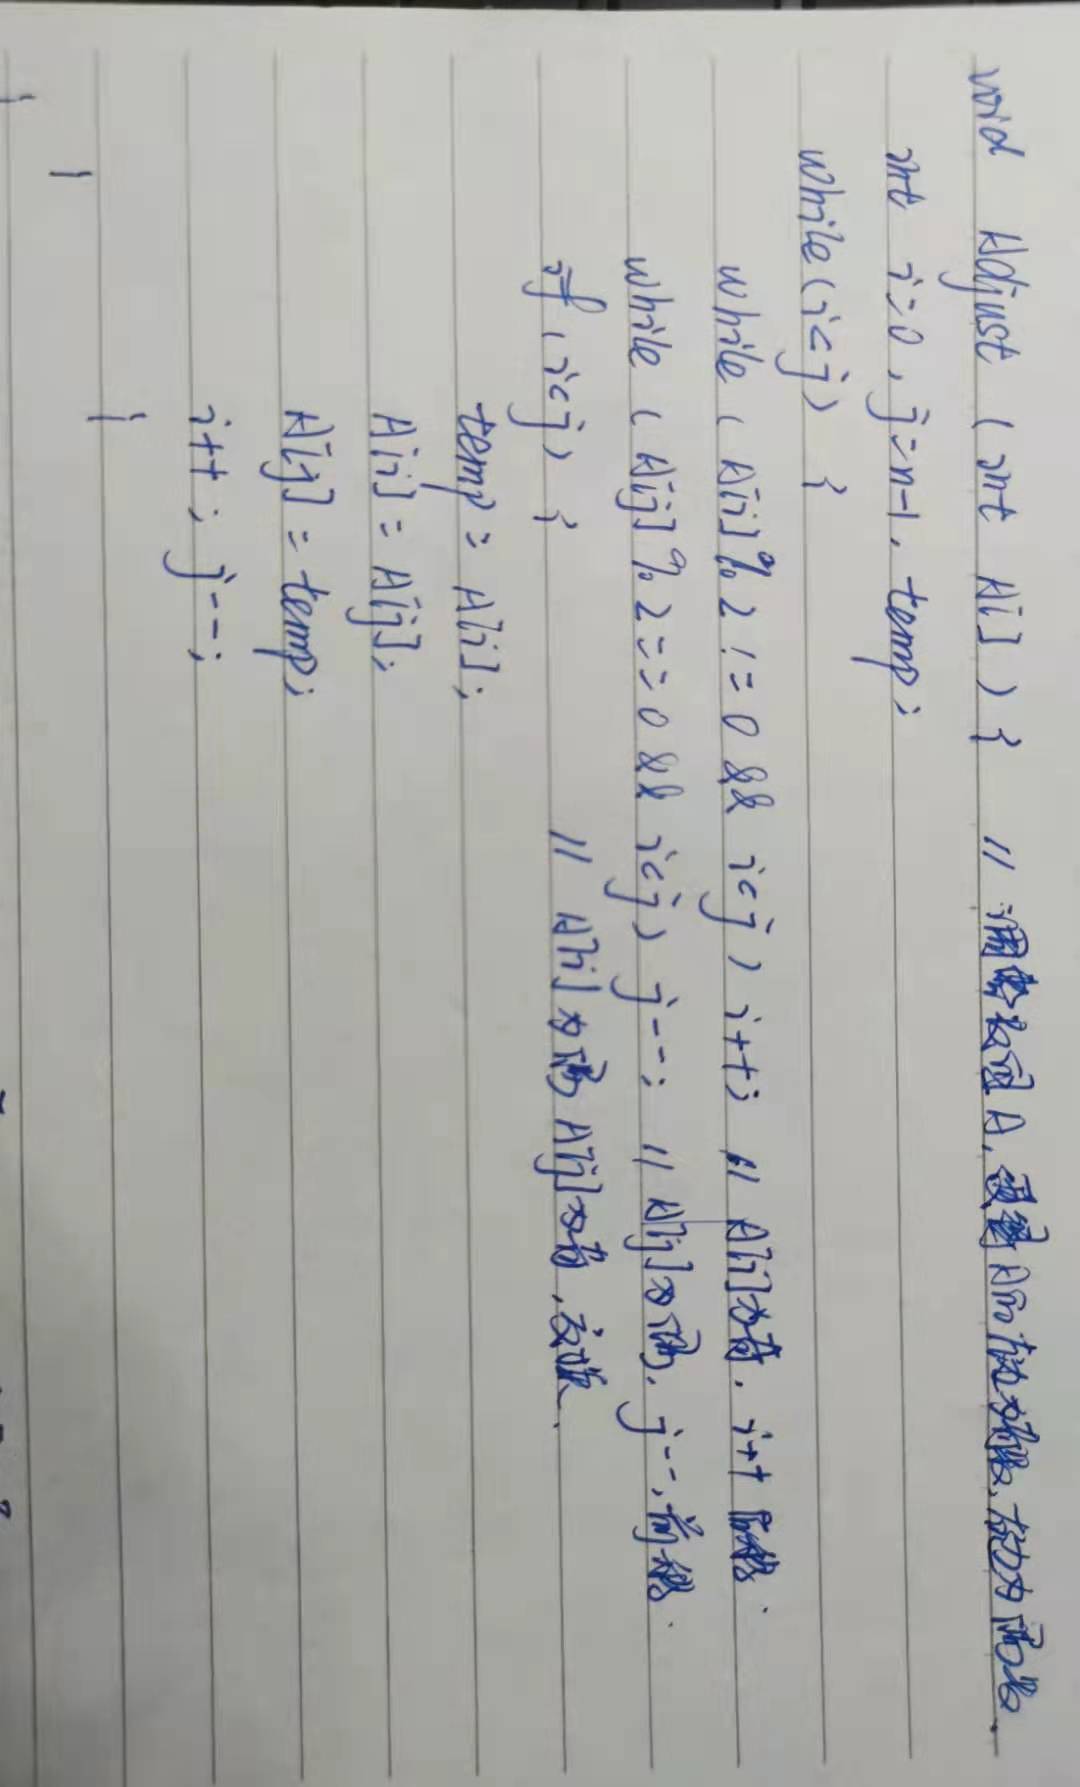 void Adjust (int A[]) { // 调整数组A,使得A的左边为奇数,右边为偶数.
int i=0, j=n-1, temp;
while(i<j) {
while (A[i]%2!=0 && i<j) i++; // A[i]为奇, i++后移.
while (A[j]%2==0 && i<j) j--; // A[j]为偶, j--,前移.
if (i<j) { // A[i]为偶A[j]为奇,交换.
temp = A[i];
A[i] = A[j];
A[j] = temp;
i++; j--;
}
}
}